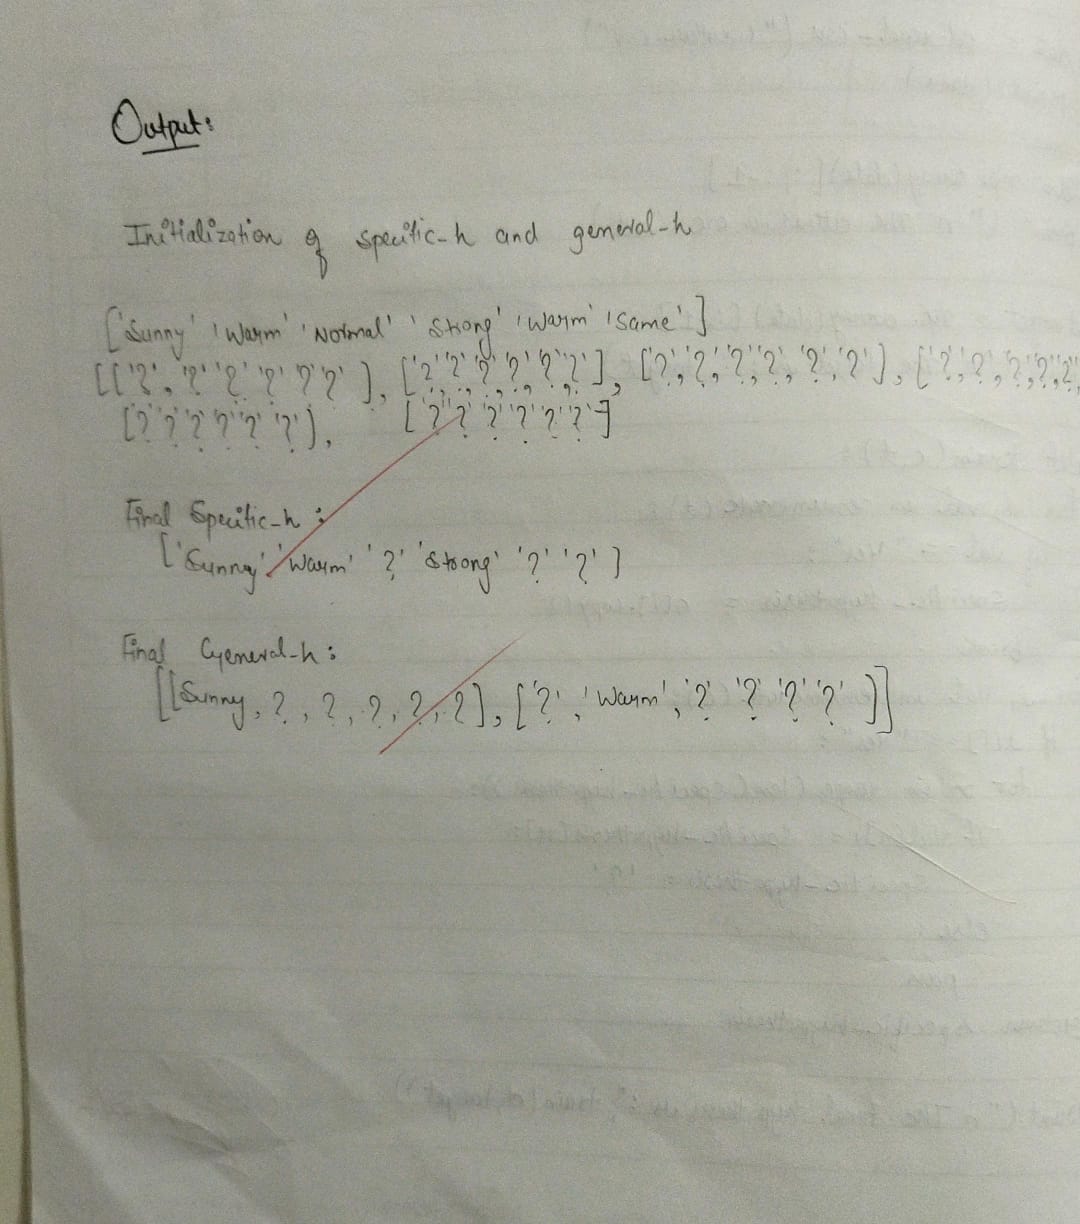 Output:
Initialization of specific-h and general-h
['Sunny' 'Warm' 'Normal' 'Strong' 'Warm' 'Same']
[['?', '?' '?' '?' '?' '?' ], ['?' '?' '?', '?', '?' '?'], ['?', '?', '?', '?', '?', '?'], ['?', '?', '?', '?', '?'
['?' '?' '?' '?' '?' '?'], ['?' '?' '?' '?' '?' '?']
Final Specific-h :
['Sunny' 'Warm' '?' 'Strong' '?' '?' ]
Final General-h :
[[Sunny, ?, ?, ?, ?, ?], ['?', 'Warm', '?' '?' '?' '?' ]]